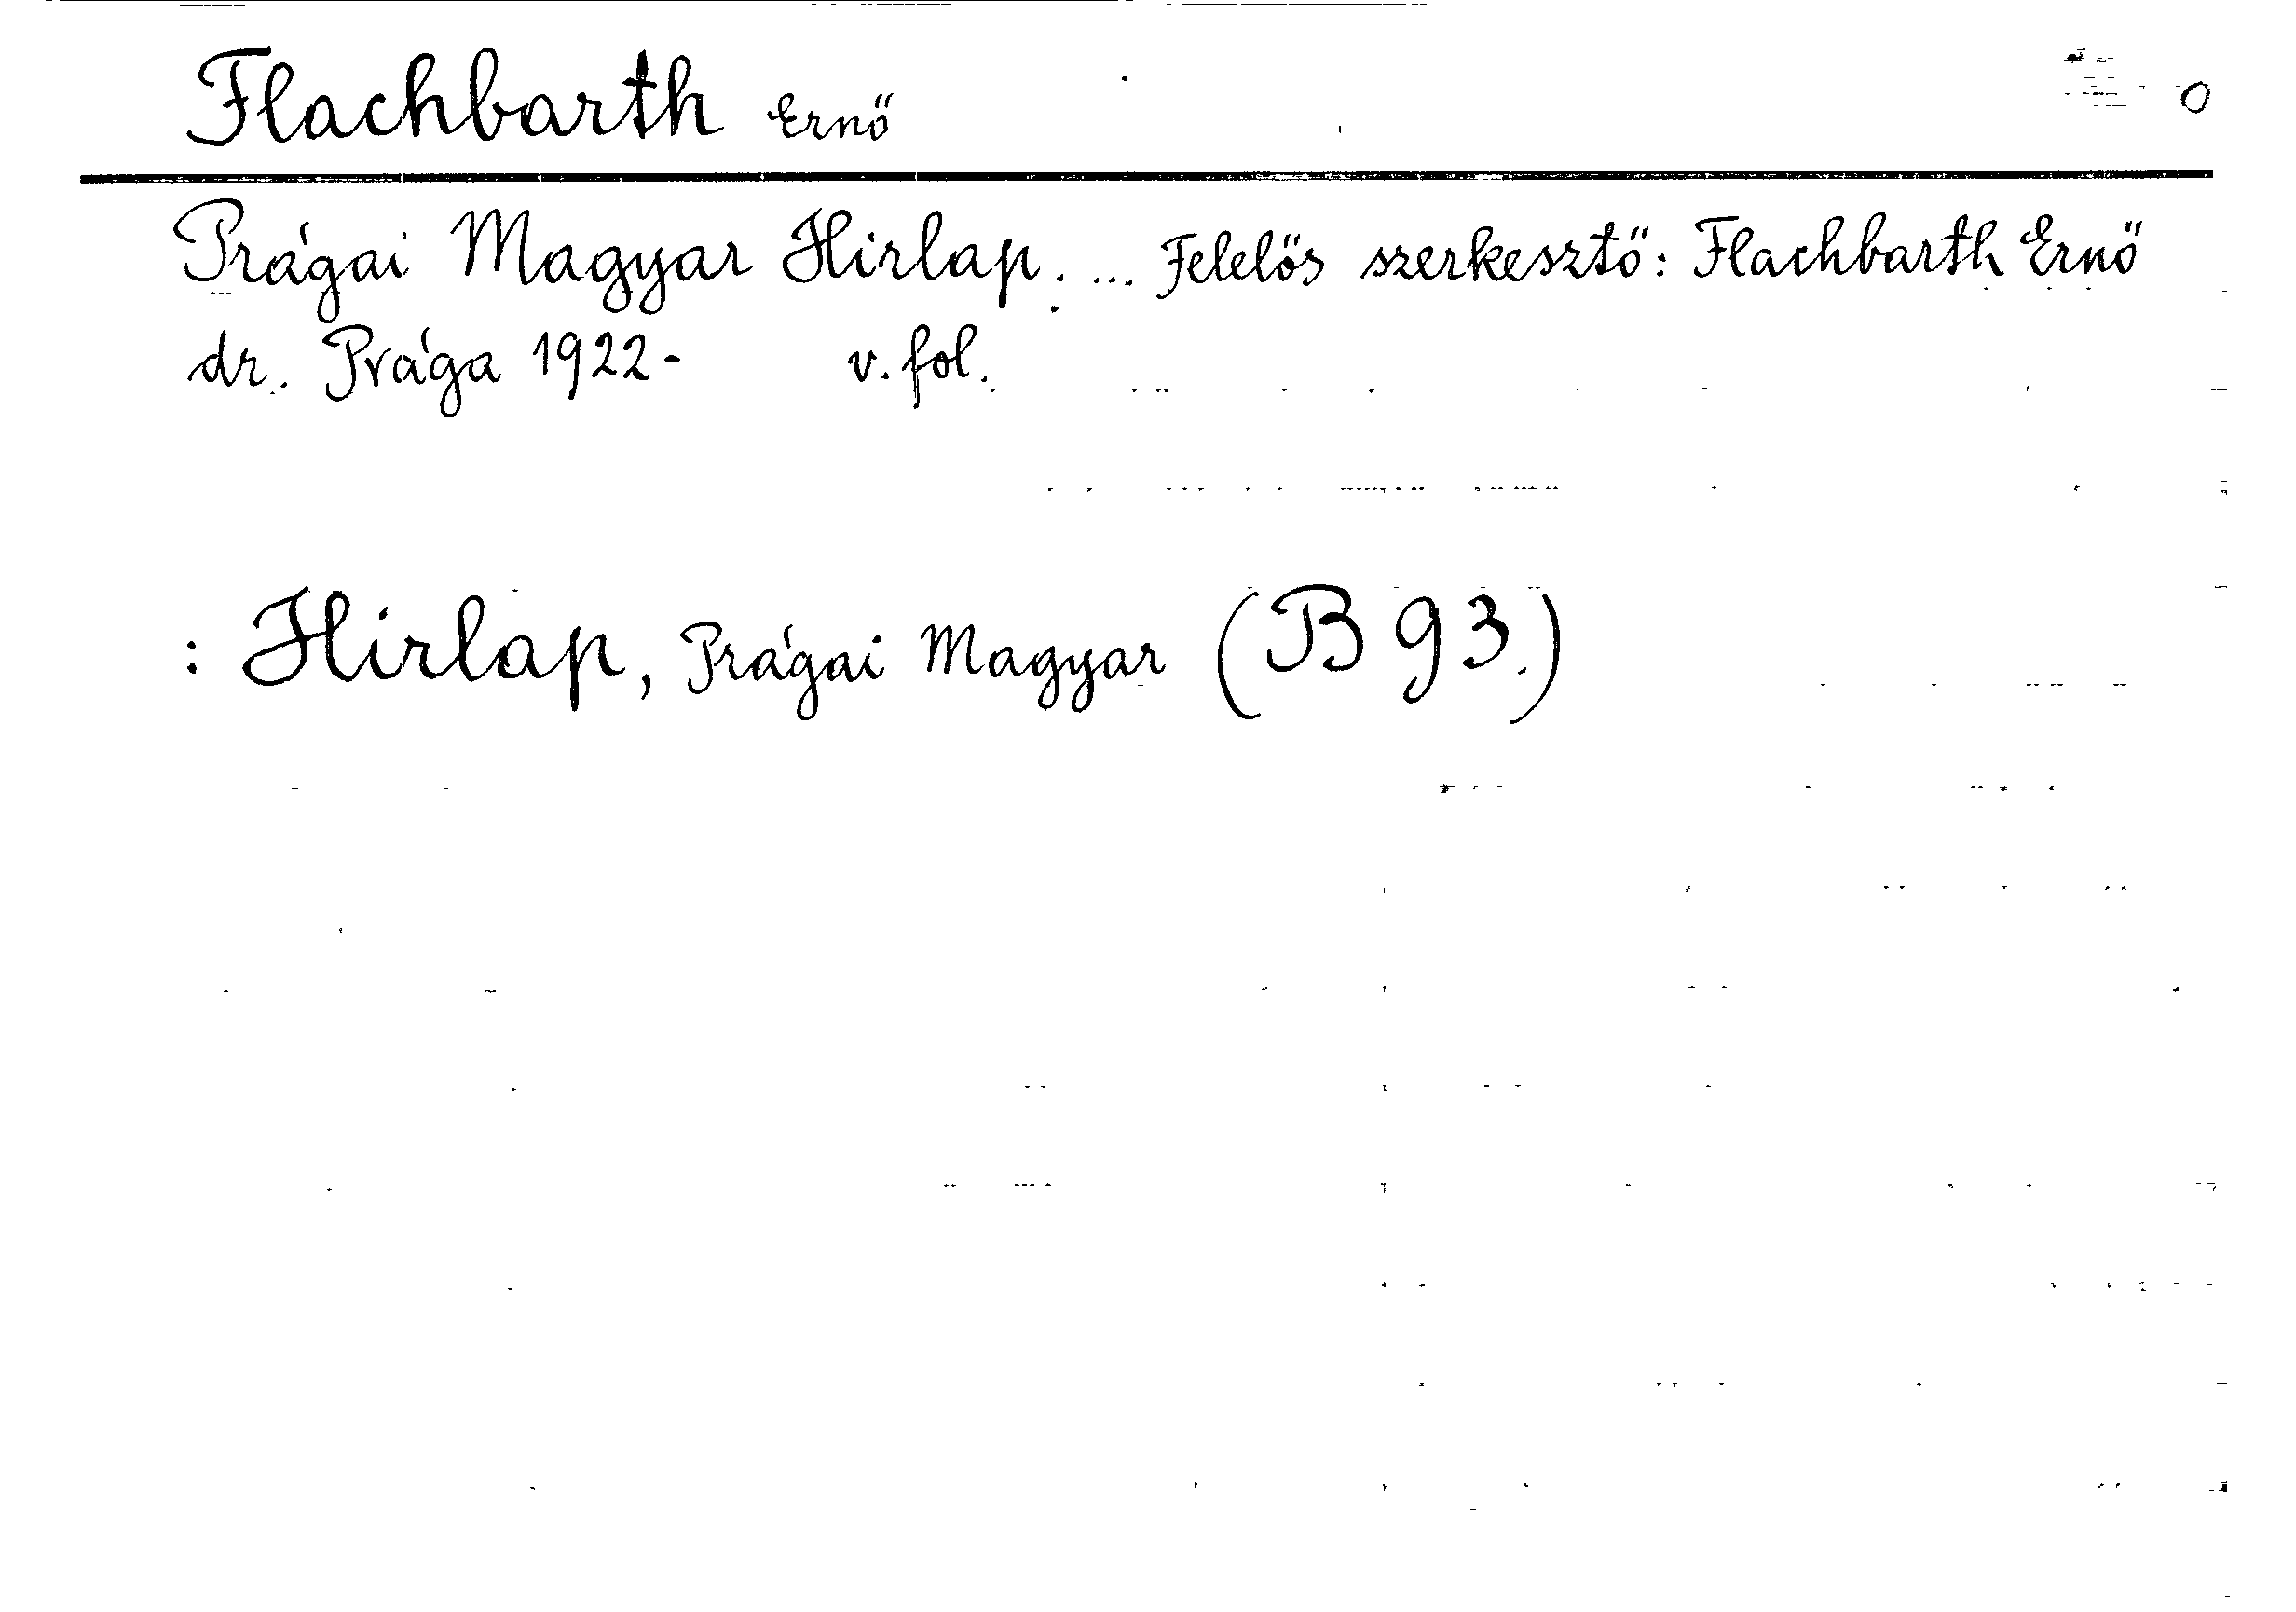 Flachbarth Ernő O
Prágai Magyar Hirlap. ... Felelős szerkesztő: Flachbarth Ernő
dr. Prága 1922- v. fol.
: Hirlap, Prágai Magyar (B 93.)